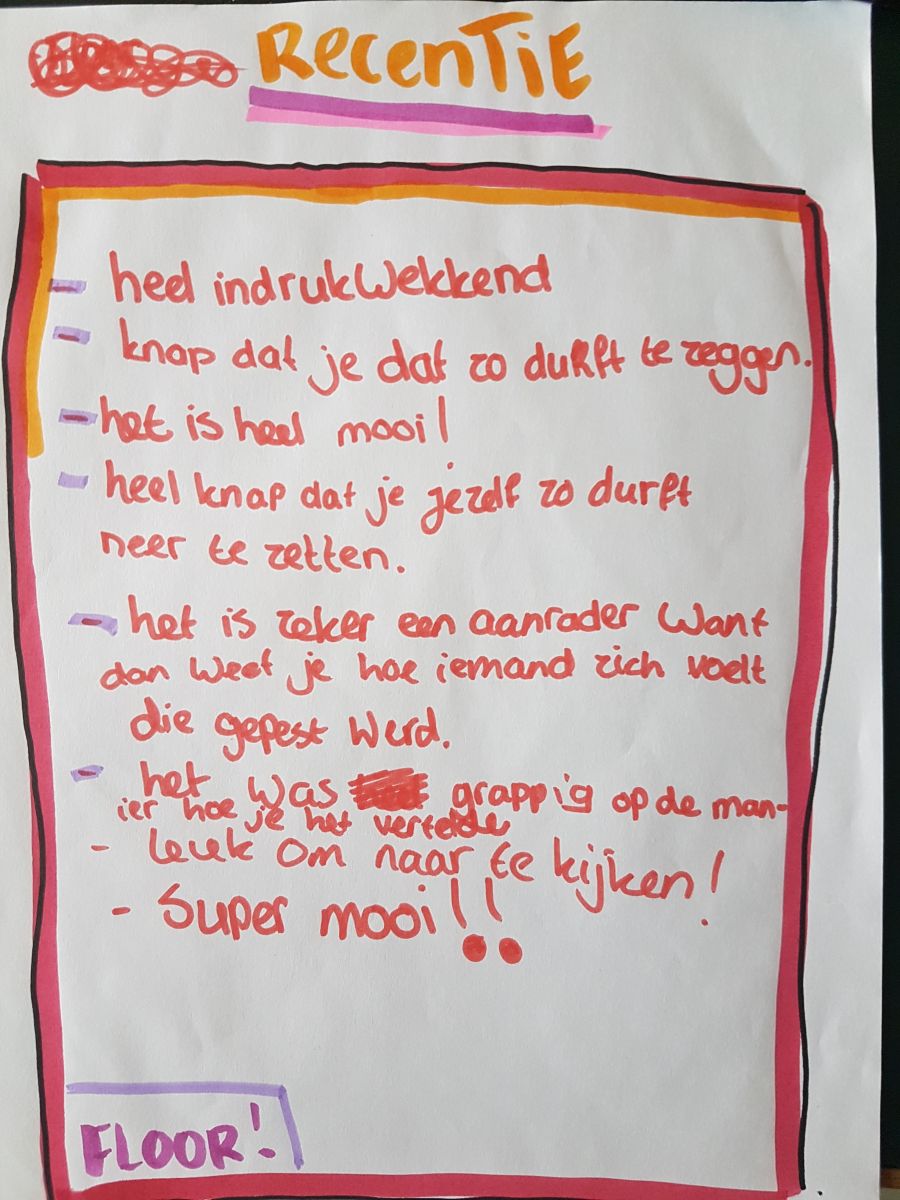 RecenTiE
- heel indrukWekkend
- knap dat je dat zo durft te zeggen.
- het is heel mooi!
- heel knap dat je jezelf zo durft
neer te zetten.
- het is zeker een aanrader Want
dan Weet je hoe iemand zich voelt
die gepest Werd.
- het Was grappig op de man-
ier hoe je het vertelde
- leuk om naar te kijken!
- Super mooi!!
FLOOR!